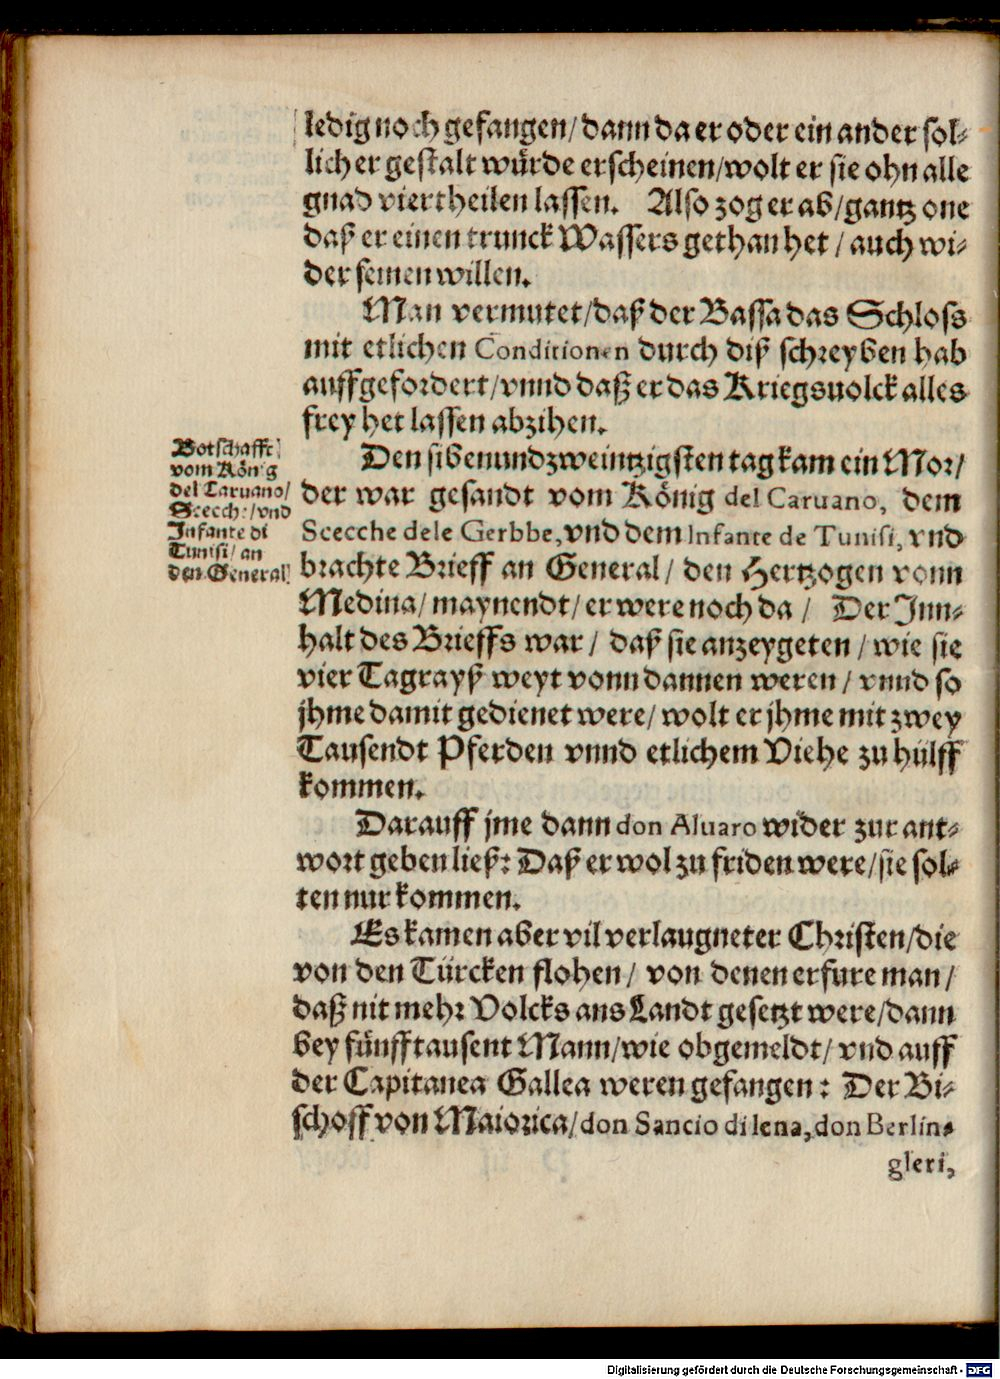 ledig noch gefangen/ dann da er oder ein ander sol-
licher gestalt würde erscheinen/ wolt er sie ohn alle
gnad viertheilen lassen. Also zog er ab/ gantz one
daß er einen trunck Wassers gethan het/ auch wi-
der seinen willen.
Man vermutet/ daß der Bassa das Schloss
mit etlichen Conditionen durch diß schreyben hab
auffgefordert/ vnnd daß er das Kriegsuolck alles
frey het lassen abzihen.
Botschafft
vom König
del Caruano/
Scecche/ vnd
Infante di
Tunisi/ an
den General.
Den sibenundzweintzigsten tag kam ein Mor/
der war gesandt vom König del Caruano, dem
Scecche dele Gerbbe, vnd dem Infante de Tunisi, vnd
brachte Brieff an General/ den Hertzogen vonn
Medina/ maynendt/ er were noch da/ Der Inn-
halt des Brieffs war/ daß sie anzeygeten/ wie sie
vier Tagrayß weyt vonn dannen weren/ vnnd so
jhme damit gedienet were/ wolt er jhme mit zwey
Tausendt Pferden vnnd etlichem Viehe zu hülff
kommen.
Darauff jme dann don Aluaro wider zur ant-
wort geben ließ: Daß er wol zu friden were/ sie sol-
ten nur kommen.
Es kamen aber vil verlaugneter Christen/ die
von den Türcken flohen/ von denen erfure man/
daß nit mehr Volcks ans Landt gesetzt were/ dann
bey fünfftausent Mann/ wie obgemeldt/ vnd auff
der Capitanea Gallea weren gefangen: Der Bi-
schoff von Maiorica/ don Sancio di lena, don Berlin-
gleri,
Digitalisierung gefördert durch die Deutsche Forschungsgemeinschaft - DFG